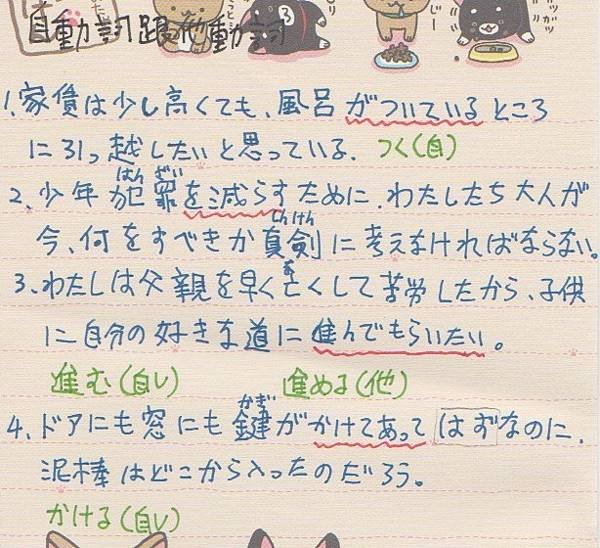 自動詞跟他動詞
1.家賃は少し高くても、風呂がついているところ
に引っ越したいと思っている。 つく(自)
はんざい
2.少年犯罪を減らすために、わたしたち大人が
しんけん
今、何をすべきか真剣に考えなければならない。
な
3.わたしは父親を早く亡くして苦労したから、子供
に自分の好きな道に進んでもらいたい。
進む(自) 進める(他)
かぎ
4.ドアにも窓にも鍵がかけてあってはずなのに、
泥棒はどこから入ったのだろう。
かける(自)